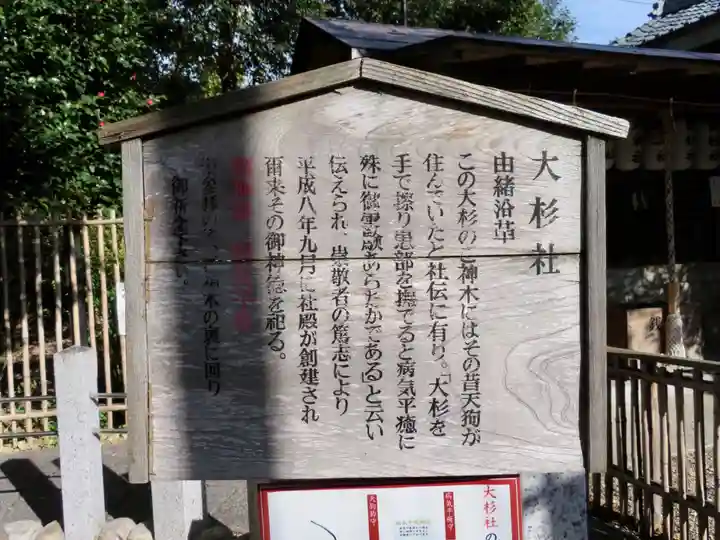 大杉社
由緒沿革
この大杉のご神木にはその昔天狗が
住んでいたと社伝に有り。「大杉を
手で擦り患部を撫でると病気平癒に
殊に御霊験あらたかである」と云い
伝えられ、崇敬者の篤志により
平成八年九月に社殿が創建され
爾来その御神徳を祀る。
木の裏に回り
御祈念下さい。
大杉社の
病気平癒守
天狗鈴守